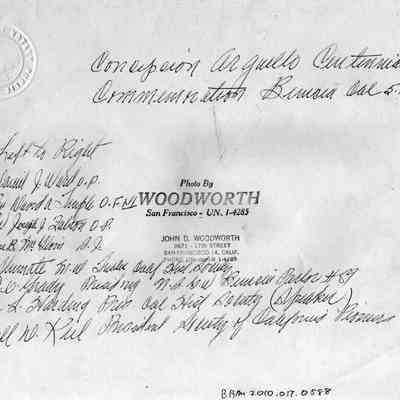 Concepcion Arguello Centennia
Commemoration Benicia Cal 5.
Left to Right
J. Ward O.P.
David A. Temple O.F.M.
Joseph J. O.P.
B. McGloin S.J.
Photo By
WOODWORTH
San Francisco - UN. 1-4285
JOHN D. WOODWORTH
2671 - 17TH STREET
SAN FRANCISCO 14, CALIF.
PHONE UNderhill 1-4285
Cal Hist Society
O'Grady Presiding Benicia Parlor # 89
L. Harding Pres Cal Hist Society (Speaker)
W. Keil President Society of California Pioneers
BAM 2010.017.0588